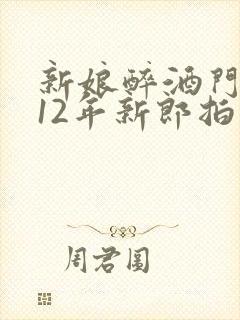 新娘醉酒門
12年新郎拍
周君圓